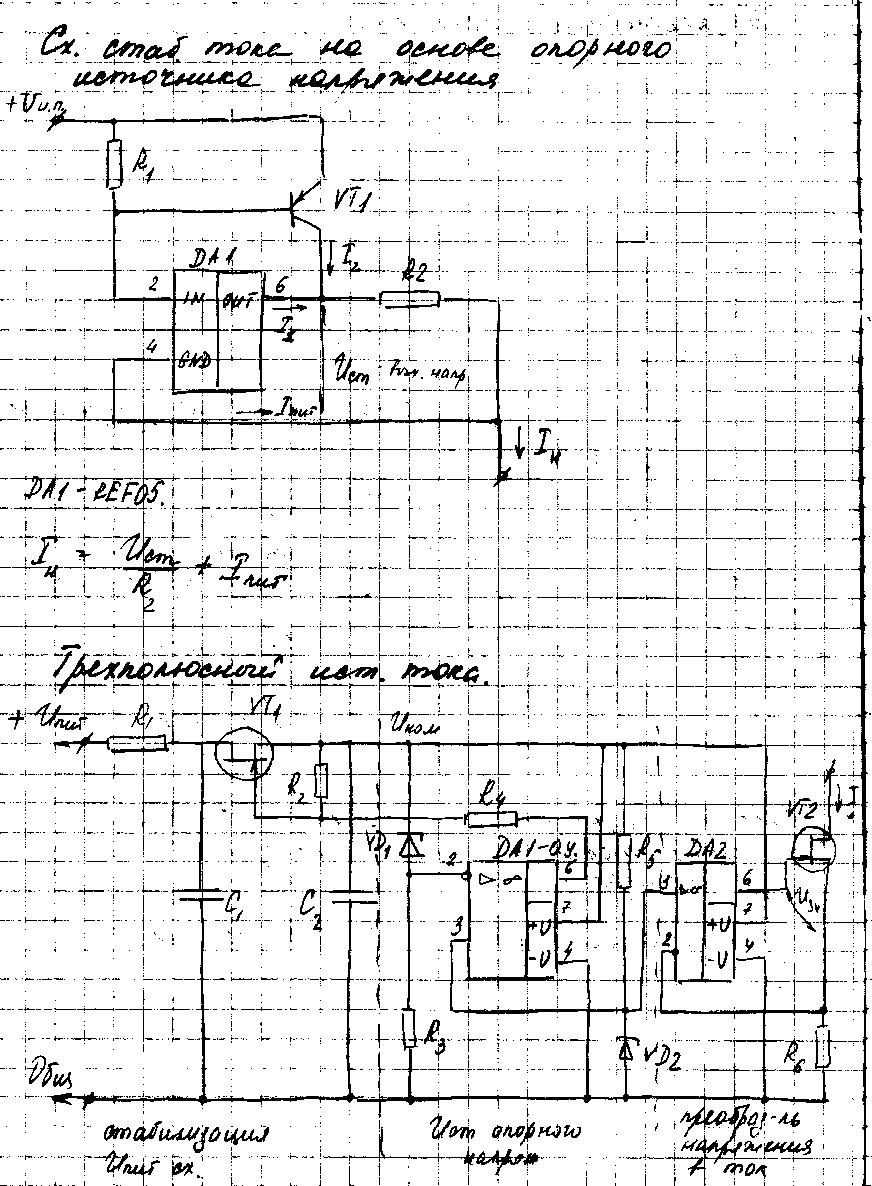 Сх. стаб. тока на основе опорного
источника напряжения
+Uи.п.
R1
VT1
DA1
I2
R2
2
IN
OUT
6
4
GND
Uст
Iпит
Iн
DA1 - REF05.
Iн = Uст / R2 + Iпит
Трехполюсный ист. тока.
+ Uпит
R1
VT1
R2
R4
VD1
DA1-ОУ.
R5
DA2
VT2
2
▷ ∞
6
6
C1
C2
3
7
+U
7
+U
4
-U
2
4
-U
R3
VD2
R6
Общ
стабилизация
Uпит сх.
Uст опорного
преобраз-ль
напряжения
в ток